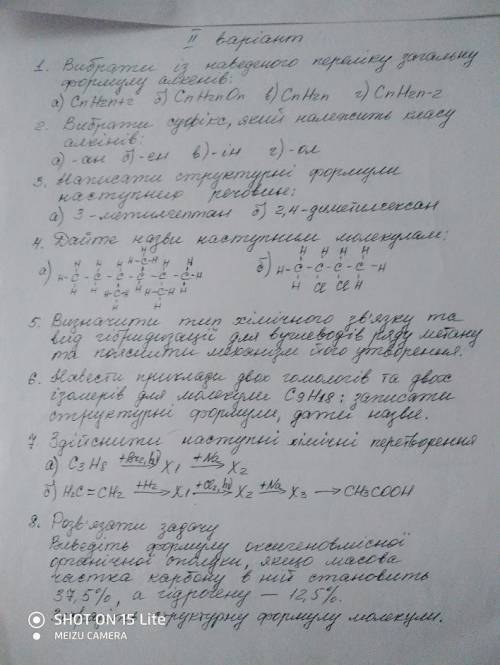 II варіант
1. Вибрати із наведеного переліку загальну
формулу алкенів:
а) CnH2n+2 б) CnH2nOn в) CnH2n г) CnH2n-2
2. Вибрати суфікс, який належить класу
алкінів:
а) -ан б) -ен в) -ін г) -ол
3. Написати структурні формули
наступних речовин:
а) 3-метилгептан б) 2,4-диметилгексан
4. Дайте назви наступним молекулам:
а) б)
5. Визначити тип хімічного зв'язку та
вид гібридизації для вуглеводів ряду метану
та пояснити механізм його утворення.
6. Навести приклади двох гомологів та двох
ізомерів для молекули C9H18: записати
структурні формули, дати назви.
7 Здійснити наступні хімічні перетворення
а) C3H8 +Br2, hν → X1 +Na → X2
б) H2C=CH2 +H2 → X1 +Cl2, hν → X2 +Na → X3 → CH3COOH
8. Розв'язати задачу
Виведіть формулу оксигеновмісної
органічної сполуки, якщо масова
частка карбону в ній становить
37,5%, а гідрогену — 12,5%.
структурну формулу молекули.
SHOT ON 15 Lite
MEIZU CAMERA